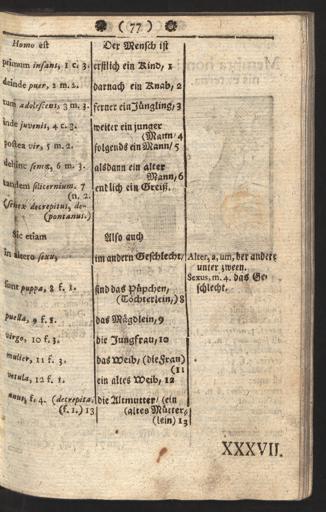 ( 77 )
Homo est
primum infans, 1 c. 3.
deinde puer, 2 m. 2.
tum adolescens, 3 m. 3.
inde juvenis, 4 c. 3.
postea vir, 5 m. 2.
dehinc senex, 6 m. 3.
tandem silicernium. 7
(n. 2.
(senex decrepitus, de-
(pontanus.)
Sic etiam
in altero sexu,
sunt puppa, 8 f. 1.
puella, 9 f. 1.
virgo, 10 f. 3.
mulier, 11 f. 3.
vetula, 12 f. 1.
anus, f. 4. (decrepita,
(f. 1.) 13
Der Mensch ist
erstlich ein Kind, 1
darnach ein Knab, 2
ferner ein Jüngling, 3
weiter ein junger
(Mann 4
folgends ein Mann / 5
alsdann ein alter
Mann, 6
endlich ein Greiß.
Also auch
im andern Geschlecht /
sind das Püpchen,
(Töchterlein,) 8
das Mägdlein, 9
die Jungfrau, 10
das Weib, (die Frau)
(11
ein altes Weib, 12
die Altmutter / (ein
(altes Mütter-
(lein) 13
Alter, a, um, der andere
unter zween.
Sexus, m. 4. das Ge-
schlecht.
XXXVII.